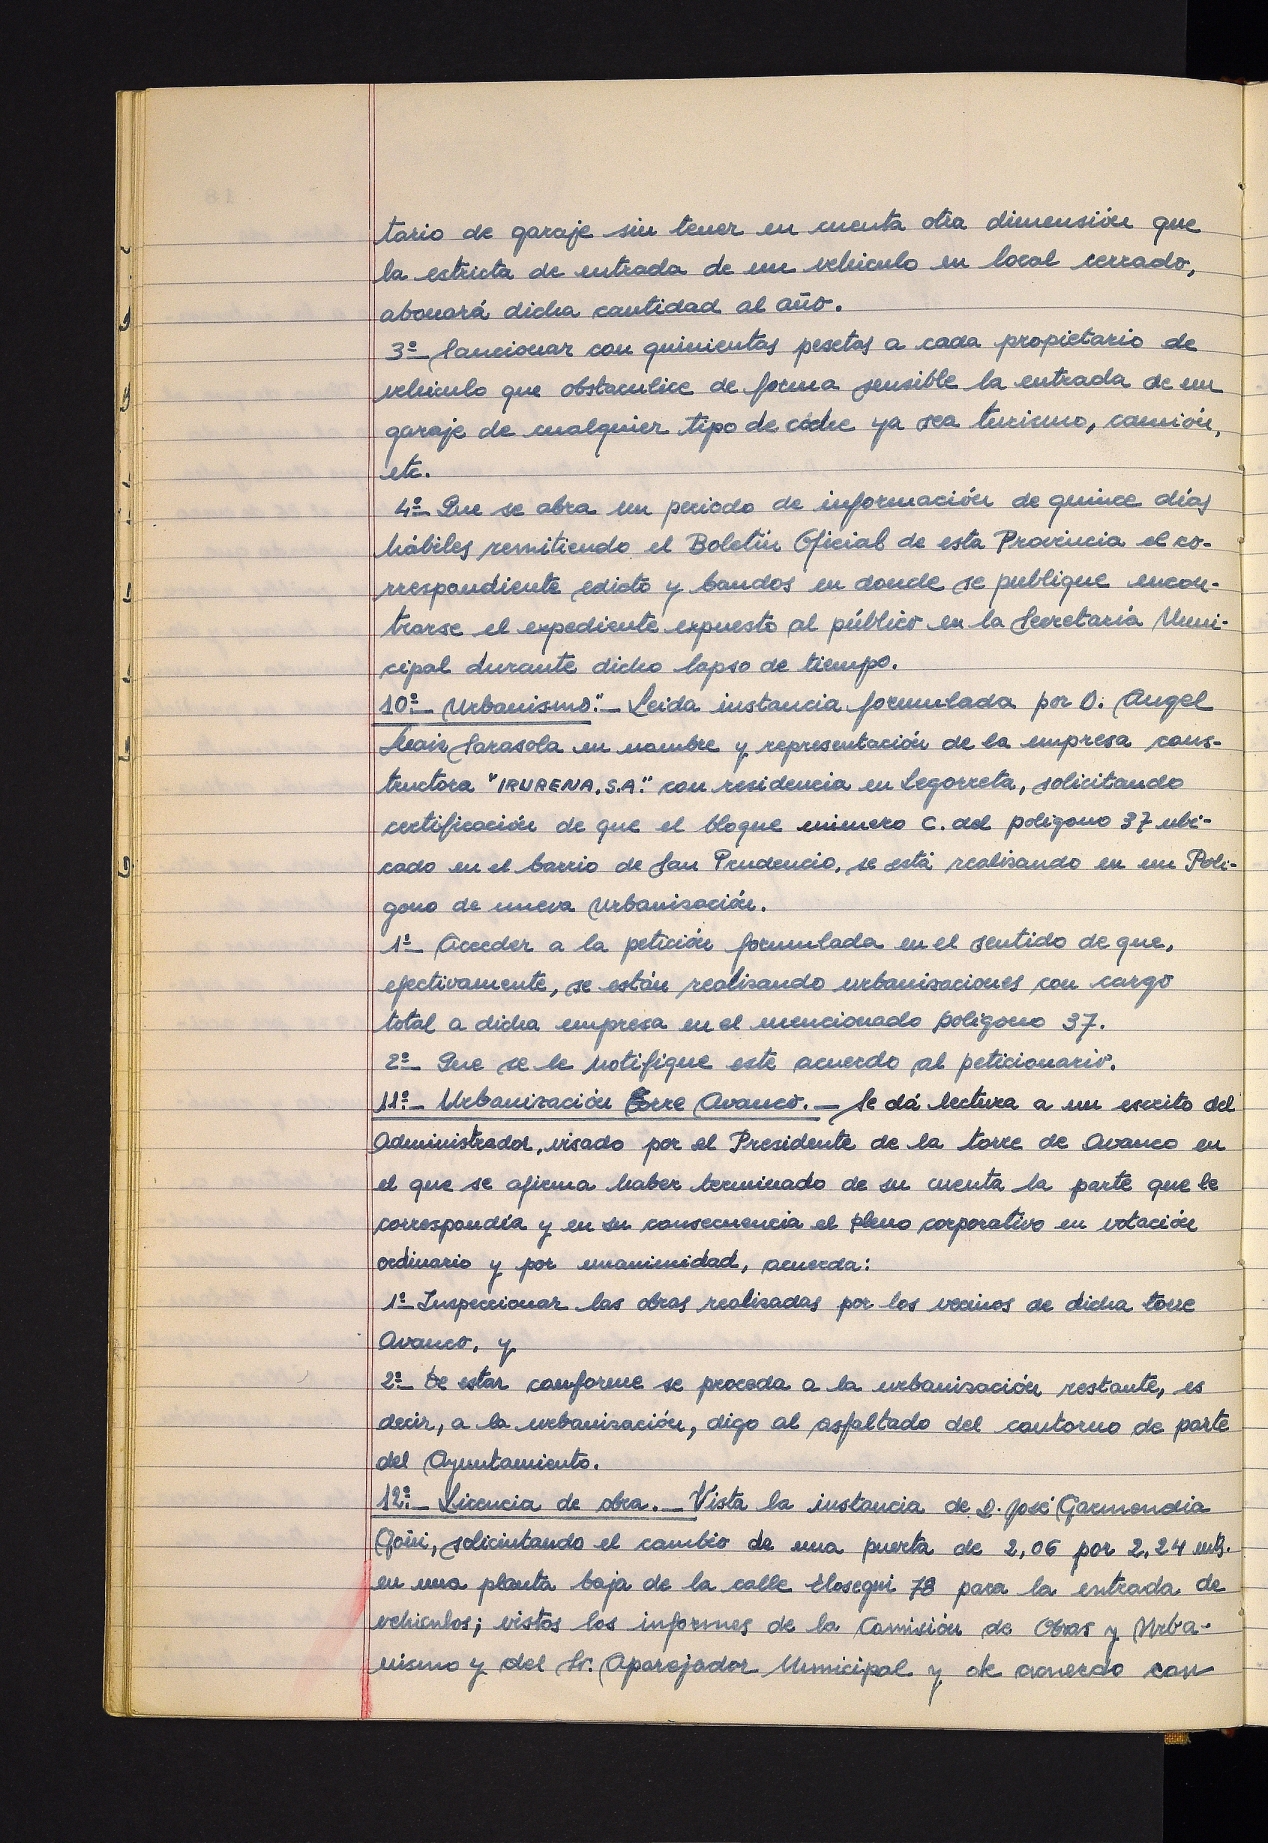 tario de garaje sin tener en cuenta otra dimensión que
la estricta de entrada de un vehiculo en local cerrado,
abonará dicha cantidad al año.
3º- Sancionar con quinientas pesetas a cada propietario de
vehiculo que obstaculice de forma sensible la entrada de un
garaje de cualquier tipo de coche ya sea turismo, camión,
etc.
4º- Que se abra un periodo de información de quince días
hábiles remitiendo el Boletín Oficial de esta Provincia el co-
rrespondiente edicto y bandos en donde se publique encon-
trarse el expediente expuesto al público en la Secretaría Muni-
cipal durante dicho lapso de tiempo.
10º- Urbanismo".- Leida instancia formulada por D. Angel
Sarasola en nombre y representación de la empresa cons-
tructora "IRURENA, S.A." con residencia en Legorreta, solicitando
certificación de que el bloque número C. del poligono 37 ubi-
cado en el barrio de San Prudencio, se está realizando en un Poli-
gono de nueva urbanización.
1º- Acceder a la petición formulada en el sentido de que,
efectivamente, se están realizando urbanizaciones con cargo
total a dicha empresa en el mencionado poligono 37.
2º- Que se le notifique este acuerdo al peticionario.
11º- Urbanización Torre Avanco.- Se dá lectura a un escrito del
Administrador, visado por el Presidente de la torre de Avanco en
el que se afirma haber terminado de su cuenta la parte que le
correspondía y en su consecuencia el pleno corporativo en votación
ordinario y por unanimidad, acuerda:
1º- Inspeccionar las obras realizadas por los vecinos de dicha torre
Avanco, y
2º- De estar conforme se proceda a la urbanización restante, es
decir, a la urbanización, digo al asfaltado del contorno de parte
del Ayuntamiento.
12º- Licencia de obra.- Vista la instancia de D. José Garmendia
Goñi, solicintando el cambio de una puerta de 2,06 por 2,24 mts.
en una planta baja de la calle Elosegui 78 para la entrada de
vehiculos; vistos los informes de la Comisión de Obras y Urba-
nismo y del Sr. Aparejador Municipal y de acuerdo con